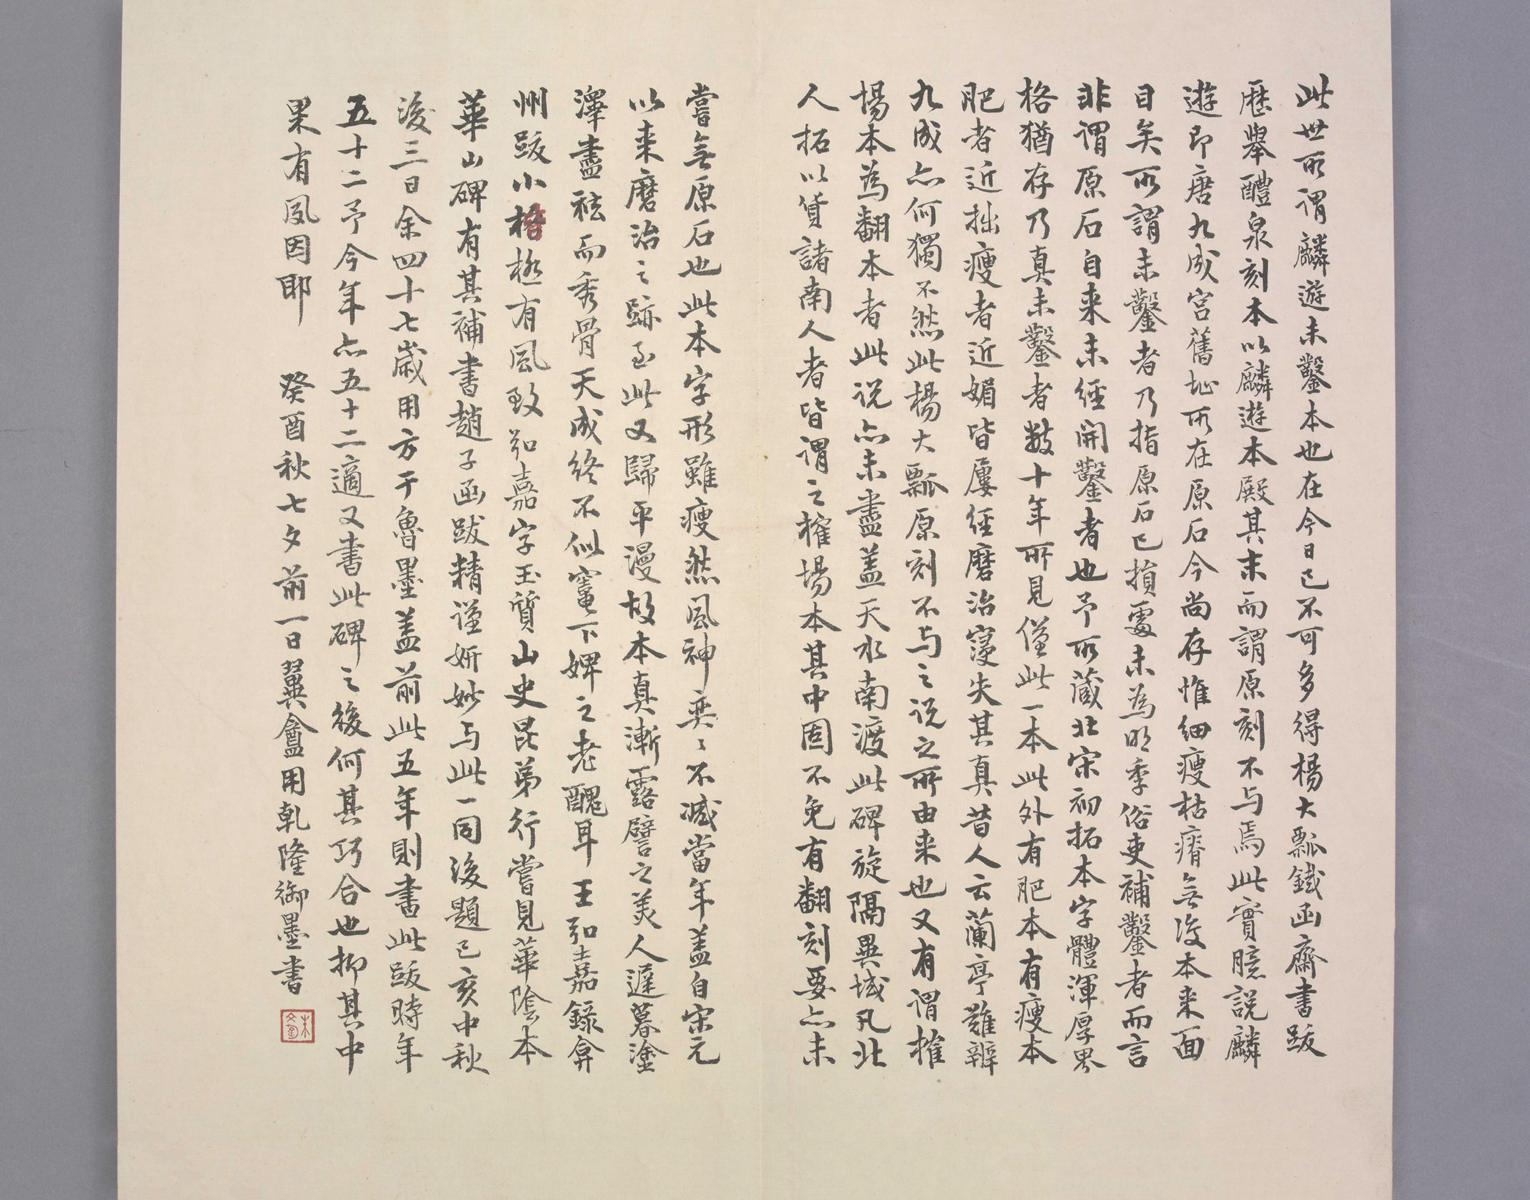 此世所谓麟遊未鑿本也在今日已不可多得楊大瓢鐵函齋書跋
歷舉醴泉刻本以麟遊本殿其末而謂原刻不与焉此實臆説麟
遊即唐九成宫舊址所在原石今尚存惟細瘦枯瘠無復本来面
目矣所謂未鑿者乃指原石已損處未為明季俗吏補鑿者而言
非谓原石自来未經開鑿者也予所蔵北宋初拓本字體渾厚界
格猶存乃真未鑿者數十年所見僅此一本此外有肥本有瘦本
肥者近拙瘦者近媚皆屢經磨治寖失其真昔人云蘭亭難辨
九成亦何獨不然此楊大瓢原刻不与之说之所由来也又有谓榷
場本為翻本者此说亦未盡盖天水南渡此碑旋隔異域凡北
人拓以貨諸南人者皆谓之榷場本其中固不免有翻刻要亦未
嘗無原石也此本字形雖瘦然風神奕〻不减當年盖自宋元
以来磨治之跡至此又歸平漫故本真漸露譬之美人遲暮塗
澤盡祛而秀骨天成终不似竈下婢之老醜耳王弘嘉録弇
州跋小楷極有風致弘嘉字玉質山史昆弟行嘗見華陰本
華山碑有其補書趙子函跋精谨妍妙与此一同後題己亥中秋
後三日余四十七歲用方于魯墨盖前此五年則書此跋時年
五十二予今年亦五十二適又書此碑之後何其巧合也抑其中
果有夙因耶 癸酉秋七夕前一日翼盦用乾隆御墨書